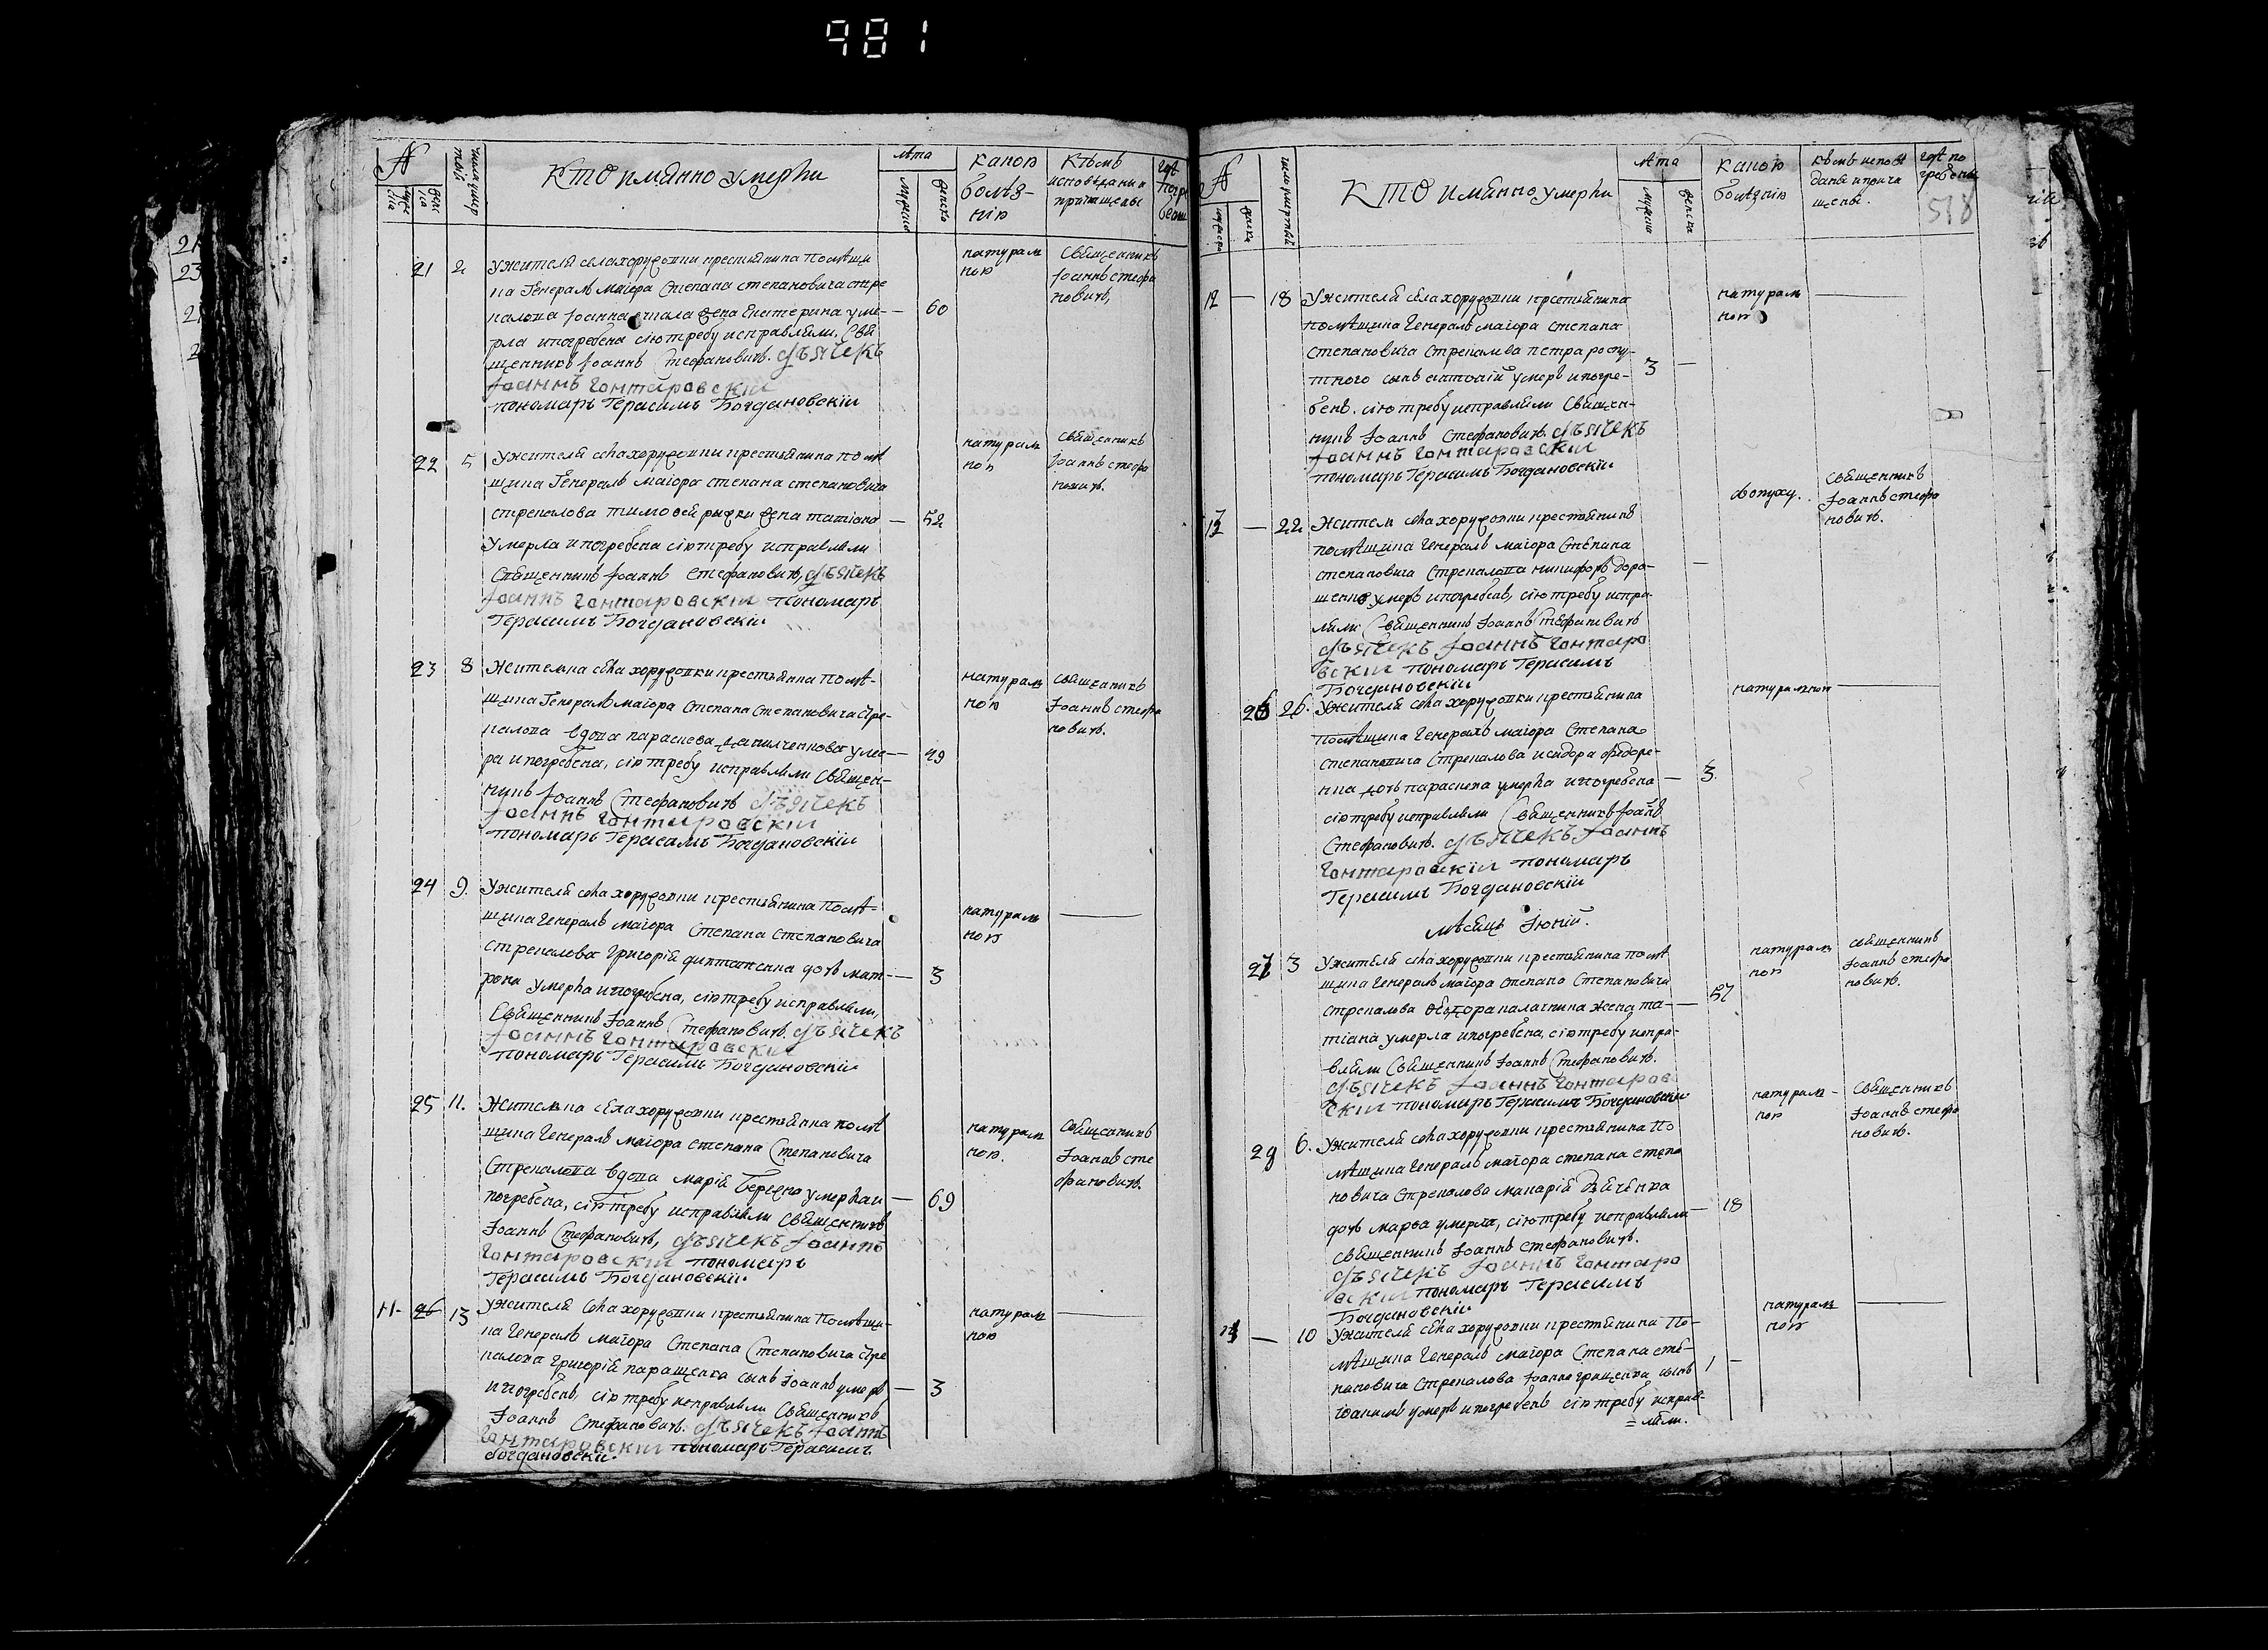 981
№
мужеска
женска
число умертвій
Кто имянно умерли
лѣта
мужеска
женска
какою
болѣз-
нію
Кѣмъ
исповѣданы и
пріобщены
гдѣ
погре
бены
21 2 У жителя села хоружовки крестьянина помѣщи
ка Генералъ маіора Степана степановича стре
калова Іоанна жена Екатерина уме- — 60
рла и погребена сію требу исправляли, Свя
щенникъ Іоаннъ Стефановичъ. дьячекъ
Іоаннъ Гонтаровскій
пономарь Герасимъ Богдановскій
натурал
ною
Священникъ
Іоаннъ стефа
новичъ,
22 5 У жителя села хоружовки крестьянина помѣ
щика Генералъ маіора степана степановича
стрекалова тимофей рыжки жена татіана — 52
умерла и погребена сію требу исправляли
Священникъ Іоаннъ Стефановичъ, дьячекъ
Іоаннъ Гонтаровскій пономарь
Герасимъ Богдановскій
натурал
ною
священникъ
Іоаннъ стефа
новичъ.
23 8 Жителька села хоружовки крестьянка помѣ-
щика Генералъ маіора Степана Степановича Стре-
калова вдова параскева данилченкова уме- — 49
ра и погребена, сію требу исправляли Священ-
никъ Іоаннъ Стефановичъ дьячекъ
Іоаннъ Гонтаровскій
пономарь Герасимъ Богдановскій
натурал
ною
священникъ
Іоаннъ стефа
новичъ.
24 9. У жителя села хоружовки крестьянина помѣ-
щика Генералъ маіора Степана Степановича
стрекалова Григорій дочь мат- — 3
рона умерла и погребена, сію требу исправляли,
Священникъ Іоаннъ Стефановичъ. дьячекъ
Іоаннъ Гонтаровскій
пономарь Герасимъ Богдановскій
натурал
ною
25 11. Жителька села хоружовки крестьянка помѣ
щика Генералъ маіора степана Степановича
Стрекалова вдова марія умерла и — 69
погребена, сію требу исправляли священникъ
Іоаннъ Стефановичъ, дьячекъ Іоаннъ
Гонтаровскій пономарь
Герасимъ Богдановскій.
натурал
ною.
священникъ
Іоаннъ сте
фановичъ.
11- 26 13 У жителя села хоружовки крестьянина помѣщи-
ка Генералъ маіора Степана Степановича стре
калова Григорій паращенка сынъ Іоаннъ умеръ — 3
и погребенъ, сію требу исправляли священникъ
Іоаннъ Стефановичъ. дьячекъ Іоаннъ
Гонтаровскій пономарь Герасимъ
Богдановскій.
натурал
ною
№
мужеска
женска
число умертвій
Кто имянно умерли
лѣта
мужеска
женска
какою
болѣзнію
кѣмъ исповѣ
даны и прича
щены.
гдѣ по
гребены
518
12 — 18 У жителя села хоружовки крестьянина
помѣщика Генералъ маіора степана
степановича Стрекалова петра роспу-
тного сынъ антоній умеръ и погре- 3 —
бенъ. сію требу исправляли Священ-
никъ Іоаннъ Стефановичъ. дьячекъ
Іоаннъ Гонтаровскій
пономарь Герасимъ Богдановскій.
натурал
ною
13 — 22 Житель села хоружовки крестьянинъ
помѣщика Генералъ маіора Степана
степановича Стрекалова никифоръ доро- —
шенко умеръ и погребенъ, сію требу испра-
вляли Священникъ Іоаннъ Стефановичъ
дьячекъ Іоаннъ Гонтаро
вскій пономарь Герасимъ
Богдановскій
священникъ
Іоаннъ стефа
новичъ.
26 26. У жителя села хоружовки крестьянина
помѣщика Генералъ маіора Степана
степановича Стрекалова исидора федоре-
нка дочь параскева умерла и погребена — 3.
сію требу исправляли Священникъ Іоаннъ
Стефановичъ. дьячекъ Іоаннъ
Гонтаровскій пономарь
Герасимъ Богдановскій
натуралною
мѣсяцъ Іюній.
27 3 У жителя села хоружовки крестьянина помѣ
щика Генералъ маіора степана Степановича
стрекалова Ѳеодора калачника жена та- — 57
тіана умерла и погребена, сію требу испра-
вляли Священникъ Іоаннъ Стефановичъ.
дьячекъ Іоаннъ Гонтаров
скій пономарь Герасимъ Богдановскій
натурал
ною
священникъ
Іоаннъ стефа
новичъ.
28 6. У жителя села хоружовки крестьянина по
мѣщика Генералъ маіора степана степа
новича Стрекалова макарій
дочь марѳа умерла, сію требу исправляли — 18
священникъ Іоаннъ стефановичъ.
дьячекъ Іоаннъ Гонтаро
вскій пономарь Герасимъ
Богдановскій
натурал-
ною
Священникъ
Іоаннъ стефа
новичъ.
14 — 10 У жителя села хоружовки крестьянина по-
мѣщика Генералъ маіора Степана сте-
пановича Стрекалова Іоанна грищенка сынъ 1 —
іоакимъ умеръ и погребенъ сію требу исправ-
=ляли.
натурал
ною